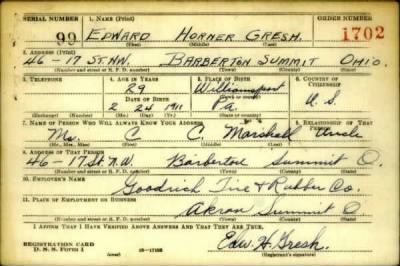 SERIAL NUMBER 1. NAME (Print) ORDER NUMBER
99 EDWARD HORNER GRESH. 1702
(First) (Middle) (Last)
2. ADDRESS (Print)
46-17 ST. NW. BARBERTON SUMMIT OHIO.
(Number and street or R. F. D. number) (Town) (County) (State)
3. TELEPHONE 4. AGE IN YEARS 5. PLACE OF BIRTH 6. COUNTRY OF CITIZENSHIP
29 Williamsport
DATE OF BIRTH (Town or county)
2 24 1911 Pa. U. S.
(Exchange) (No.) (Mo.) (Day) (Yr.) (State or country)
7. NAME OF PERSON WHO WILL ALWAYS KNOW YOUR ADDRESS RELATIONSHIP OF THAT PERSON
C. C. Marshall Uncle
(Mr., Mrs., Miss) (First) (Middle) (Last)
8. ADDRESS OF THAT PERSON
46-17 St. N.W. Barberton Summit O.
(Number and street or R. F. D. number) (Town) (County) (State)
10. EMPLOYER'S NAME
Goodrich Tire & Rubber Co.
11. PLACE OF EMPLOYMENT OR BUSINESS
Akron Summit O
(Number and street or R. F. D. number) (Town) (County) (State)
I AFFIRM THAT I HAVE VERIFIED ABOVE ANSWERS AND THAT THEY ARE TRUE.
REGISTRATION CARD
D. S. S. Form 1 (over) 16-17105 Edw. H. Gresh.
(Registrant's signature)